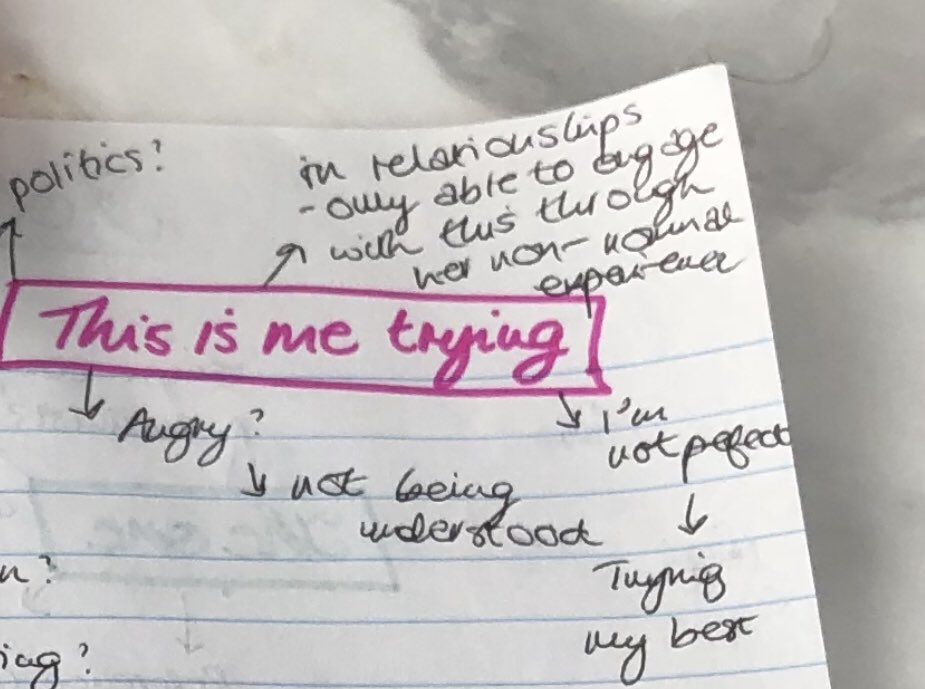 politics?
in relationships
- only able to engage
with this through
her non-normal
experience
This is me trying
Angry?
I'm
not pefect
not being
understood
Trying
my best
n?
ing?